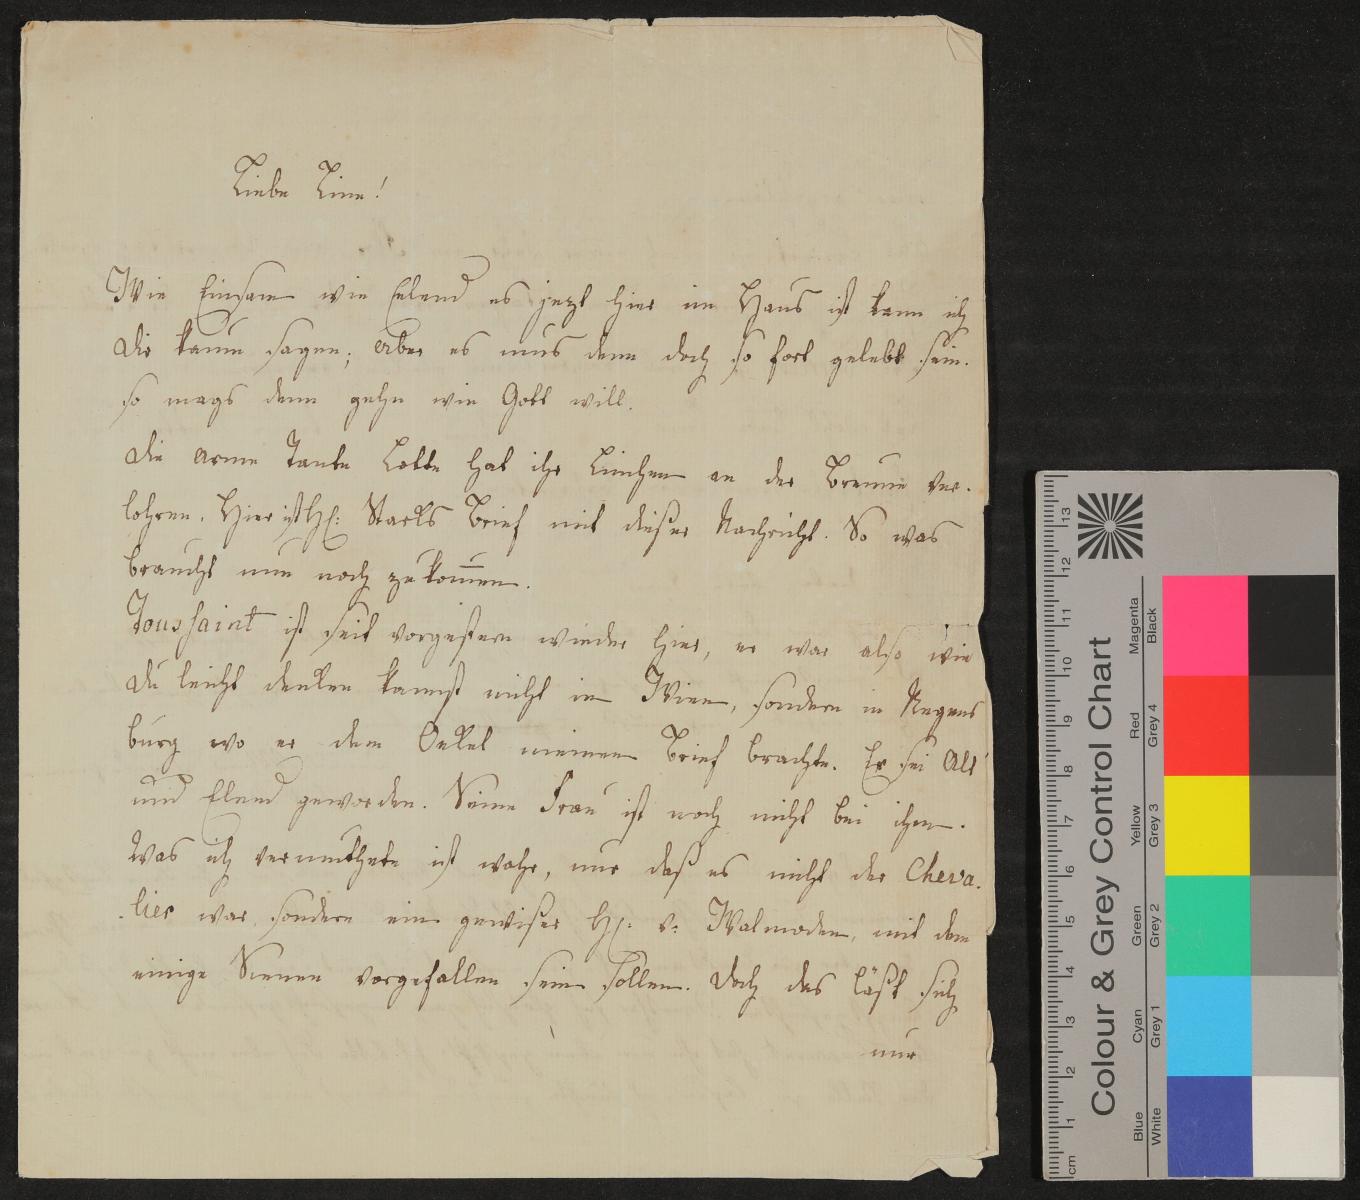 Liebe Line!
Wie Einsam wie Elend es jezt hier im Haus ist kann ich
dir kaum sagen; aber es mus denn doch so fort gelebt sein.
so mags denn gehn wie Gott will.
die arme Tante Lotte hat ihr Linchen an der Breune ver-
lohren. Hier ist H: Starks Brief mit dießer Nachricht. So was
braucht nun noch zu kom̄en.
Toussaint ist seit vorgestern wieder hier, er war also wie
du leicht denken kannst nicht in Wien, sondern in Regens
burg wo er dem Onkel meinen Brief brachte. Er sei Alt
und Elend geworden. Seine Frau ist noch nicht bei ihm.
Was ich vermuthete ist wahr, nur daß es nicht der Cheva-
-lier war sondern ein gewißer H: v: Walmoden, mit dem
einige Scenen vorgefallen sein sollen. Doch das läßt sich
nur
cm 1 2 3 4 5 6 7 8 9 10 11 12 13
Colour & Grey Control Chart
Blue Cyan Green Yellow Red Magenta
White Grey 1 Grey 2 Grey 3 Grey 4 Black